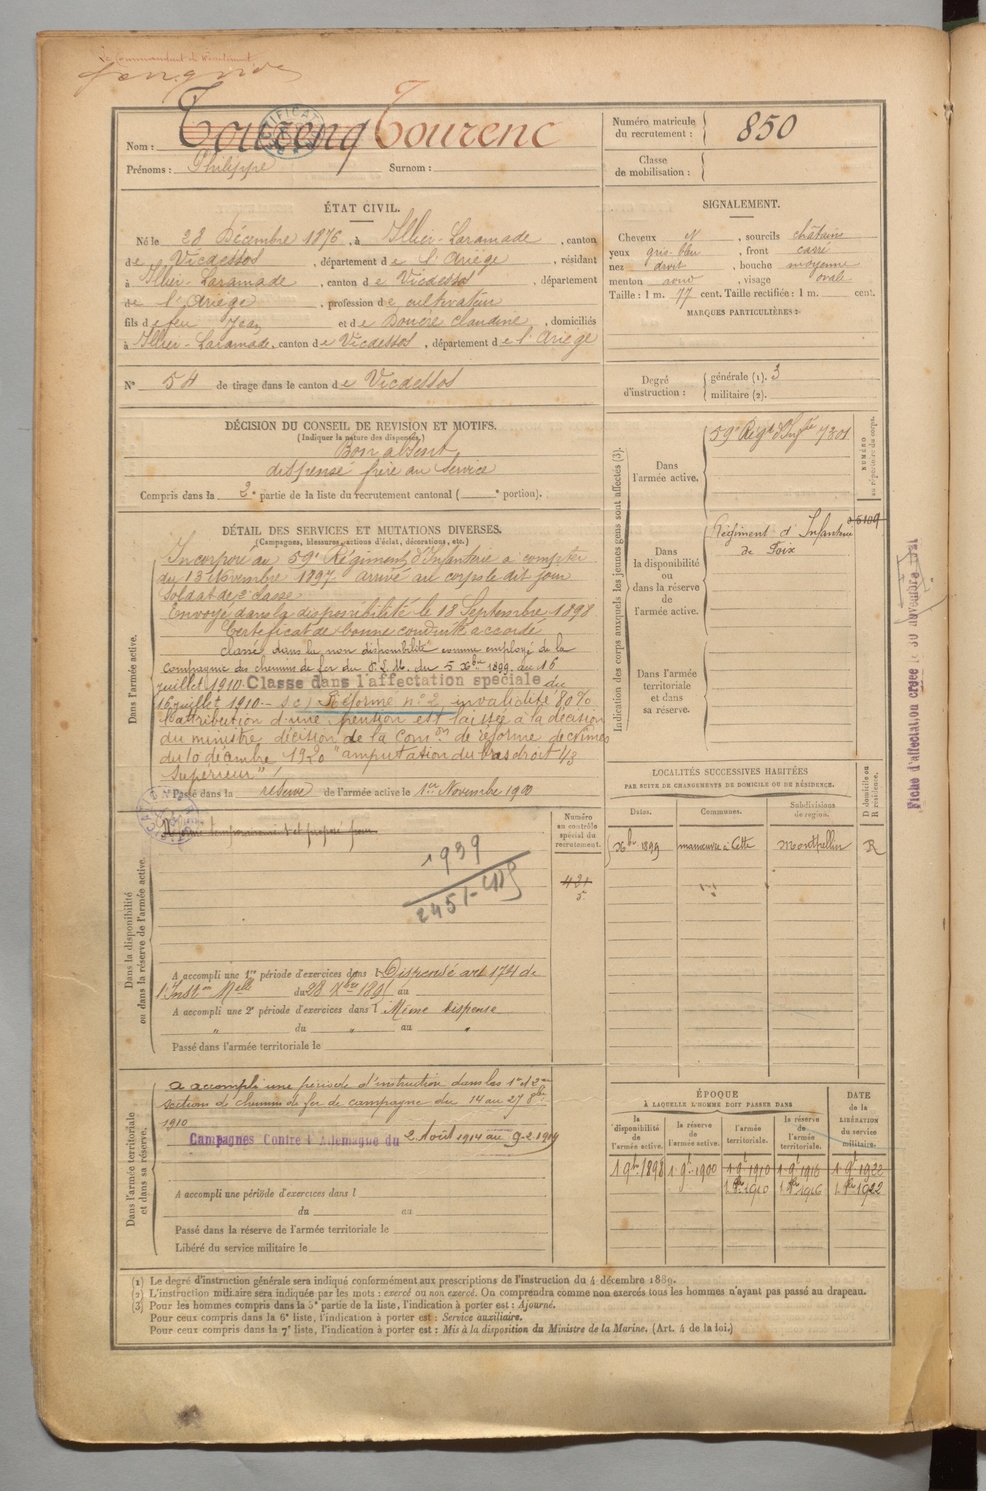 Le Commandant de Recrutement
Nom : Tourenq Tourenc
Prénoms : Philippe Surnom :
Numéro matricule du recrutement : 850
Classe de mobilisation :
ÉTAT CIVIL.
Né le 28 Décembre 1876, à Illier-Laramade, canton
de Vicdessos, département de l'Ariège, résidant
à Illier-Laramade, canton de Vicdessos, département
de l'Ariège, profession de cultivateur
fils de feu Jean et de Bouère Claudine, domiciliés
à Illier-Laramade, canton de Vicdessos, département de l'Ariège
N° 54 de tirage dans le canton de Vicdessos
SIGNALEMENT.
Cheveux N, sourcils châtains
yeux gris-bleu, front carré
nez droit, bouche moyenne
menton rond, visage ovale
Taille : 1 m. 77 cent. Taille rectifiée : 1 m. cent.
MARQUES PARTICULIÈRES :
Degré d'instruction : générale (1). 3
militaire (2).
DÉCISION DU CONSEIL DE REVISION ET MOTIFS.
(Indiquer la nature des dispenses.)
Bon absent
dispensé frère au service
Compris dans la 2e partie de la liste du recrutement cantonal ( e portion).
DÉTAIL DES SERVICES ET MUTATIONS DIVERSES.
(Campagnes, blessures, actions d'éclat, décorations, etc.)
Dans l'armée active.
Incorporé au 59e Régiment d'Infanterie à compter
du 13 Novembre 1897 arrivé au corps le dit jour
Soldat de 2e classe
Envoyé dans la disponibilité le 18 Septembre 1898
Certificat de bonne conduite accordé
classé dans la non disponibilité comme employé de la
Compagnie des chemins de fer du P.L.M. du 5 Xbre 1899 au 16
juillet 1910. Classé dans l'affectation spéciale du
16 juillet 1910.- Réforme n° 2 invalidité 80%
l'attribution d'une pension est laissée à la décision
du ministre décision de la Comon de réforme de
du 10 décembre 1920 "amputation du bras droit 1/3
supérieur"
Passé dans la réserve de l'armée active le 1er Novembre 1900
Indication des corps auxquels les jeunes gens sont affectés (3).
Dans l'armée active.
59e Régt d'Infrie 7301
NUMÉRO au répertoire du corps.
Dans la disponibilité ou dans la réserve de l'armée active.
Régiment d'Infanterie
de Foix
Dans l'armée territoriale et dans sa réserve.
Fiche d'affectation créée le 30 novembre
Dans la disponibilité ou dans la réserve de l'armée active.
Numéro au contrôle spécial du recrutement.
421
5
1939
A accompli une 1re période d'exercices dans l Dispensé art 174 de
l'Inston Melle du 28 Xbre 1895 au
A accompli une 2e période d'exercices dans l Même dispense
du " au "
Passé dans l'armée territoriale le
LOCALITÉS SUCCESSIVES HABITÉES
PAR SUITE DE CHANGEMENTS DE DOMICILE OU DE RÉSIDENCE.
Dates. Communes. Subdivisions de région. D domicile ou R résidence.
Xbre 1899 manœuvre à Cette Montpellier R
Dans l'armée territoriale et dans sa réserve.
a accompli une période d'instruction dans les 1re et 2me
sections de chemins de fer de campagne du 14 au 27 8bre
1910
Campagnes Contre l'Allemagne du 2 Août 1914 au 9-2-1919
A accompli une période d'exercices dans l
du au
Passé dans la réserve de l'armée territoriale le
Libéré du service militaire le
ÉPOQUE
À LAQUELLE L'HOMME DOIT PASSER DANS
la disponibilité de l'armée active. la réserve de l'armée active. l'armée territoriale. la réserve de l'armée territoriale. DATE de la LIBÉRATION du service militaire.
1 9bre 1898 1 9bre 1900 1 9bre 1910 1 9bre 1916 1 9bre 1922
1 8bre 1910 1 8bre 1916 1 8bre 1922
(1) Le degré d'instruction générale sera indiqué conformément aux prescriptions de l'instruction du 4 décembre 1889.
(2) L'instruction militaire sera indiquée par les mots : exercé ou non exercé. On comprendra comme non exercés tous les hommes n'ayant pas passé au drapeau.
(3) Pour les hommes compris dans la 5e partie de la liste, l'indication à porter est : Ajourné.
Pour ceux compris dans la 6e liste, l'indication à porter est : Service auxiliaire.
Pour ceux compris dans la 7e liste, l'indication à porter est : Mis à la disposition du Ministre de la Marine. (Art. 4 de la loi.)